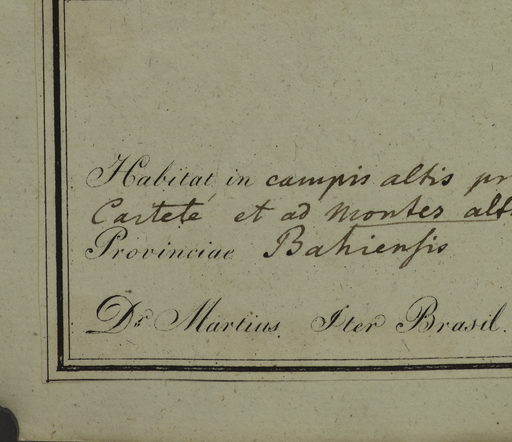 Habitat in campis altis pr
Carteté et ad montes alt
Provinciae Bahiensis
Dr. Martius Iter Brasil.